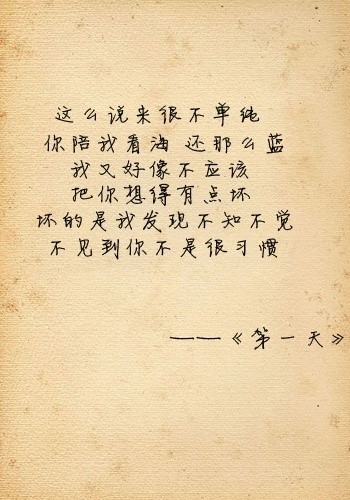 这么说来很不单纯
你陪我看海 还那么蓝
我又好像不应该
把你想得有点坏
坏的是我发现不知不觉
不见到你不是很习惯
——《第一天》